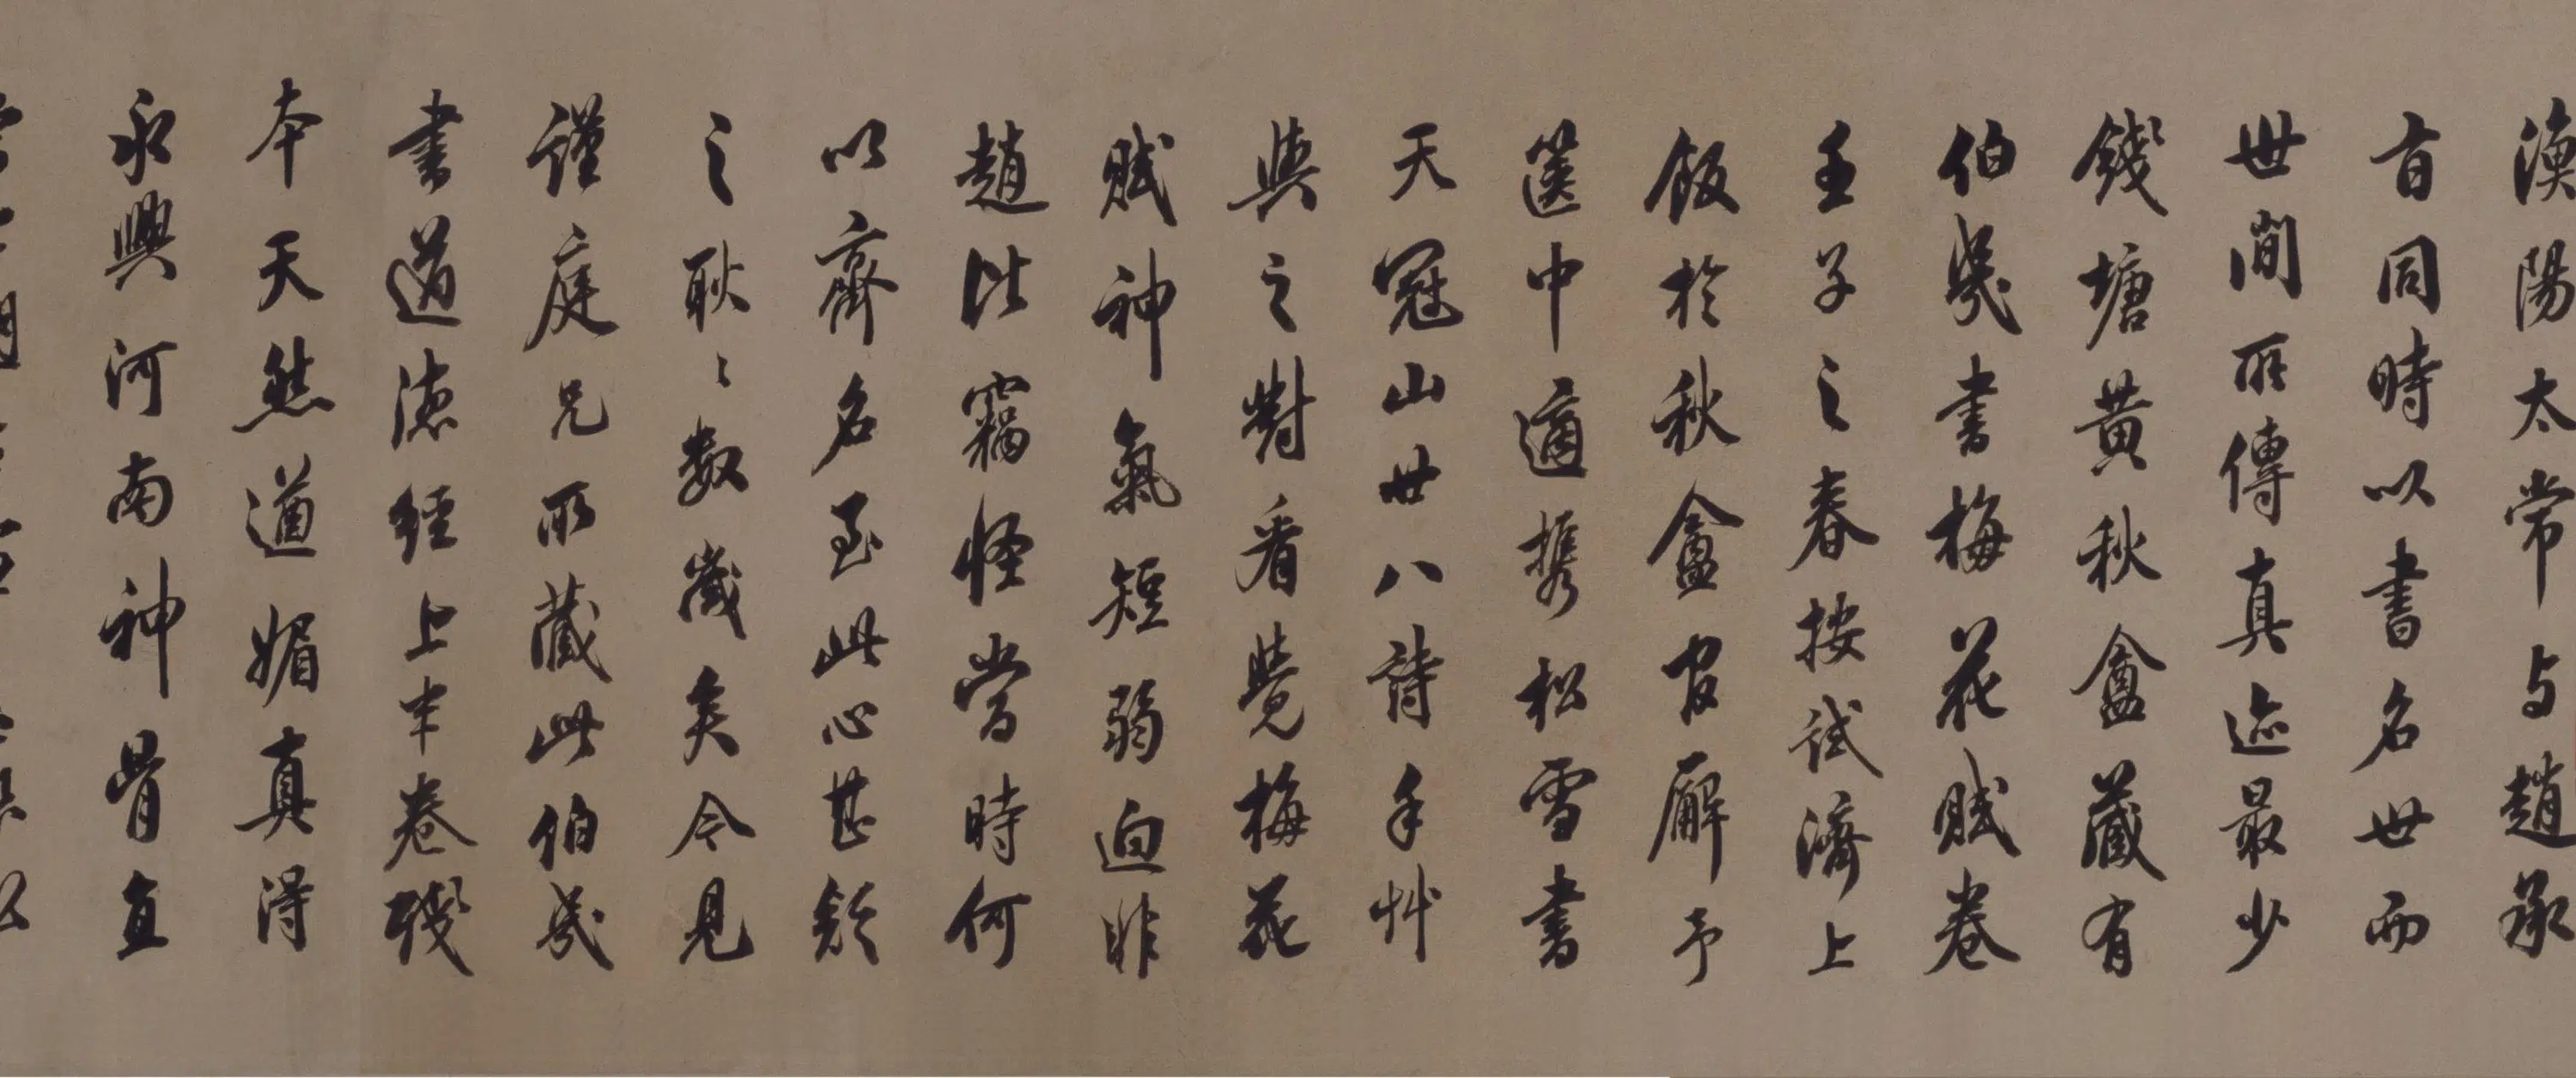 漁陽太常与趙承
旨同時以書名世而
世間所傳真迹最少
錢塘黃秋盦藏有
伯幾書梅花賦卷
壬子之春按試濟上
飯於秋盦官廨予
篋中適携松雪書
天冠山廿八詩手艸
與之對看覺梅花
賦神氣短弱迥非
趙比竊怪當時何
以齊名至此心甚疑
之耿〻數歲矣今見
謹庭兄所藏此伯幾
書道德經上半卷殘
本天然遒媚真得
永興河南神骨直